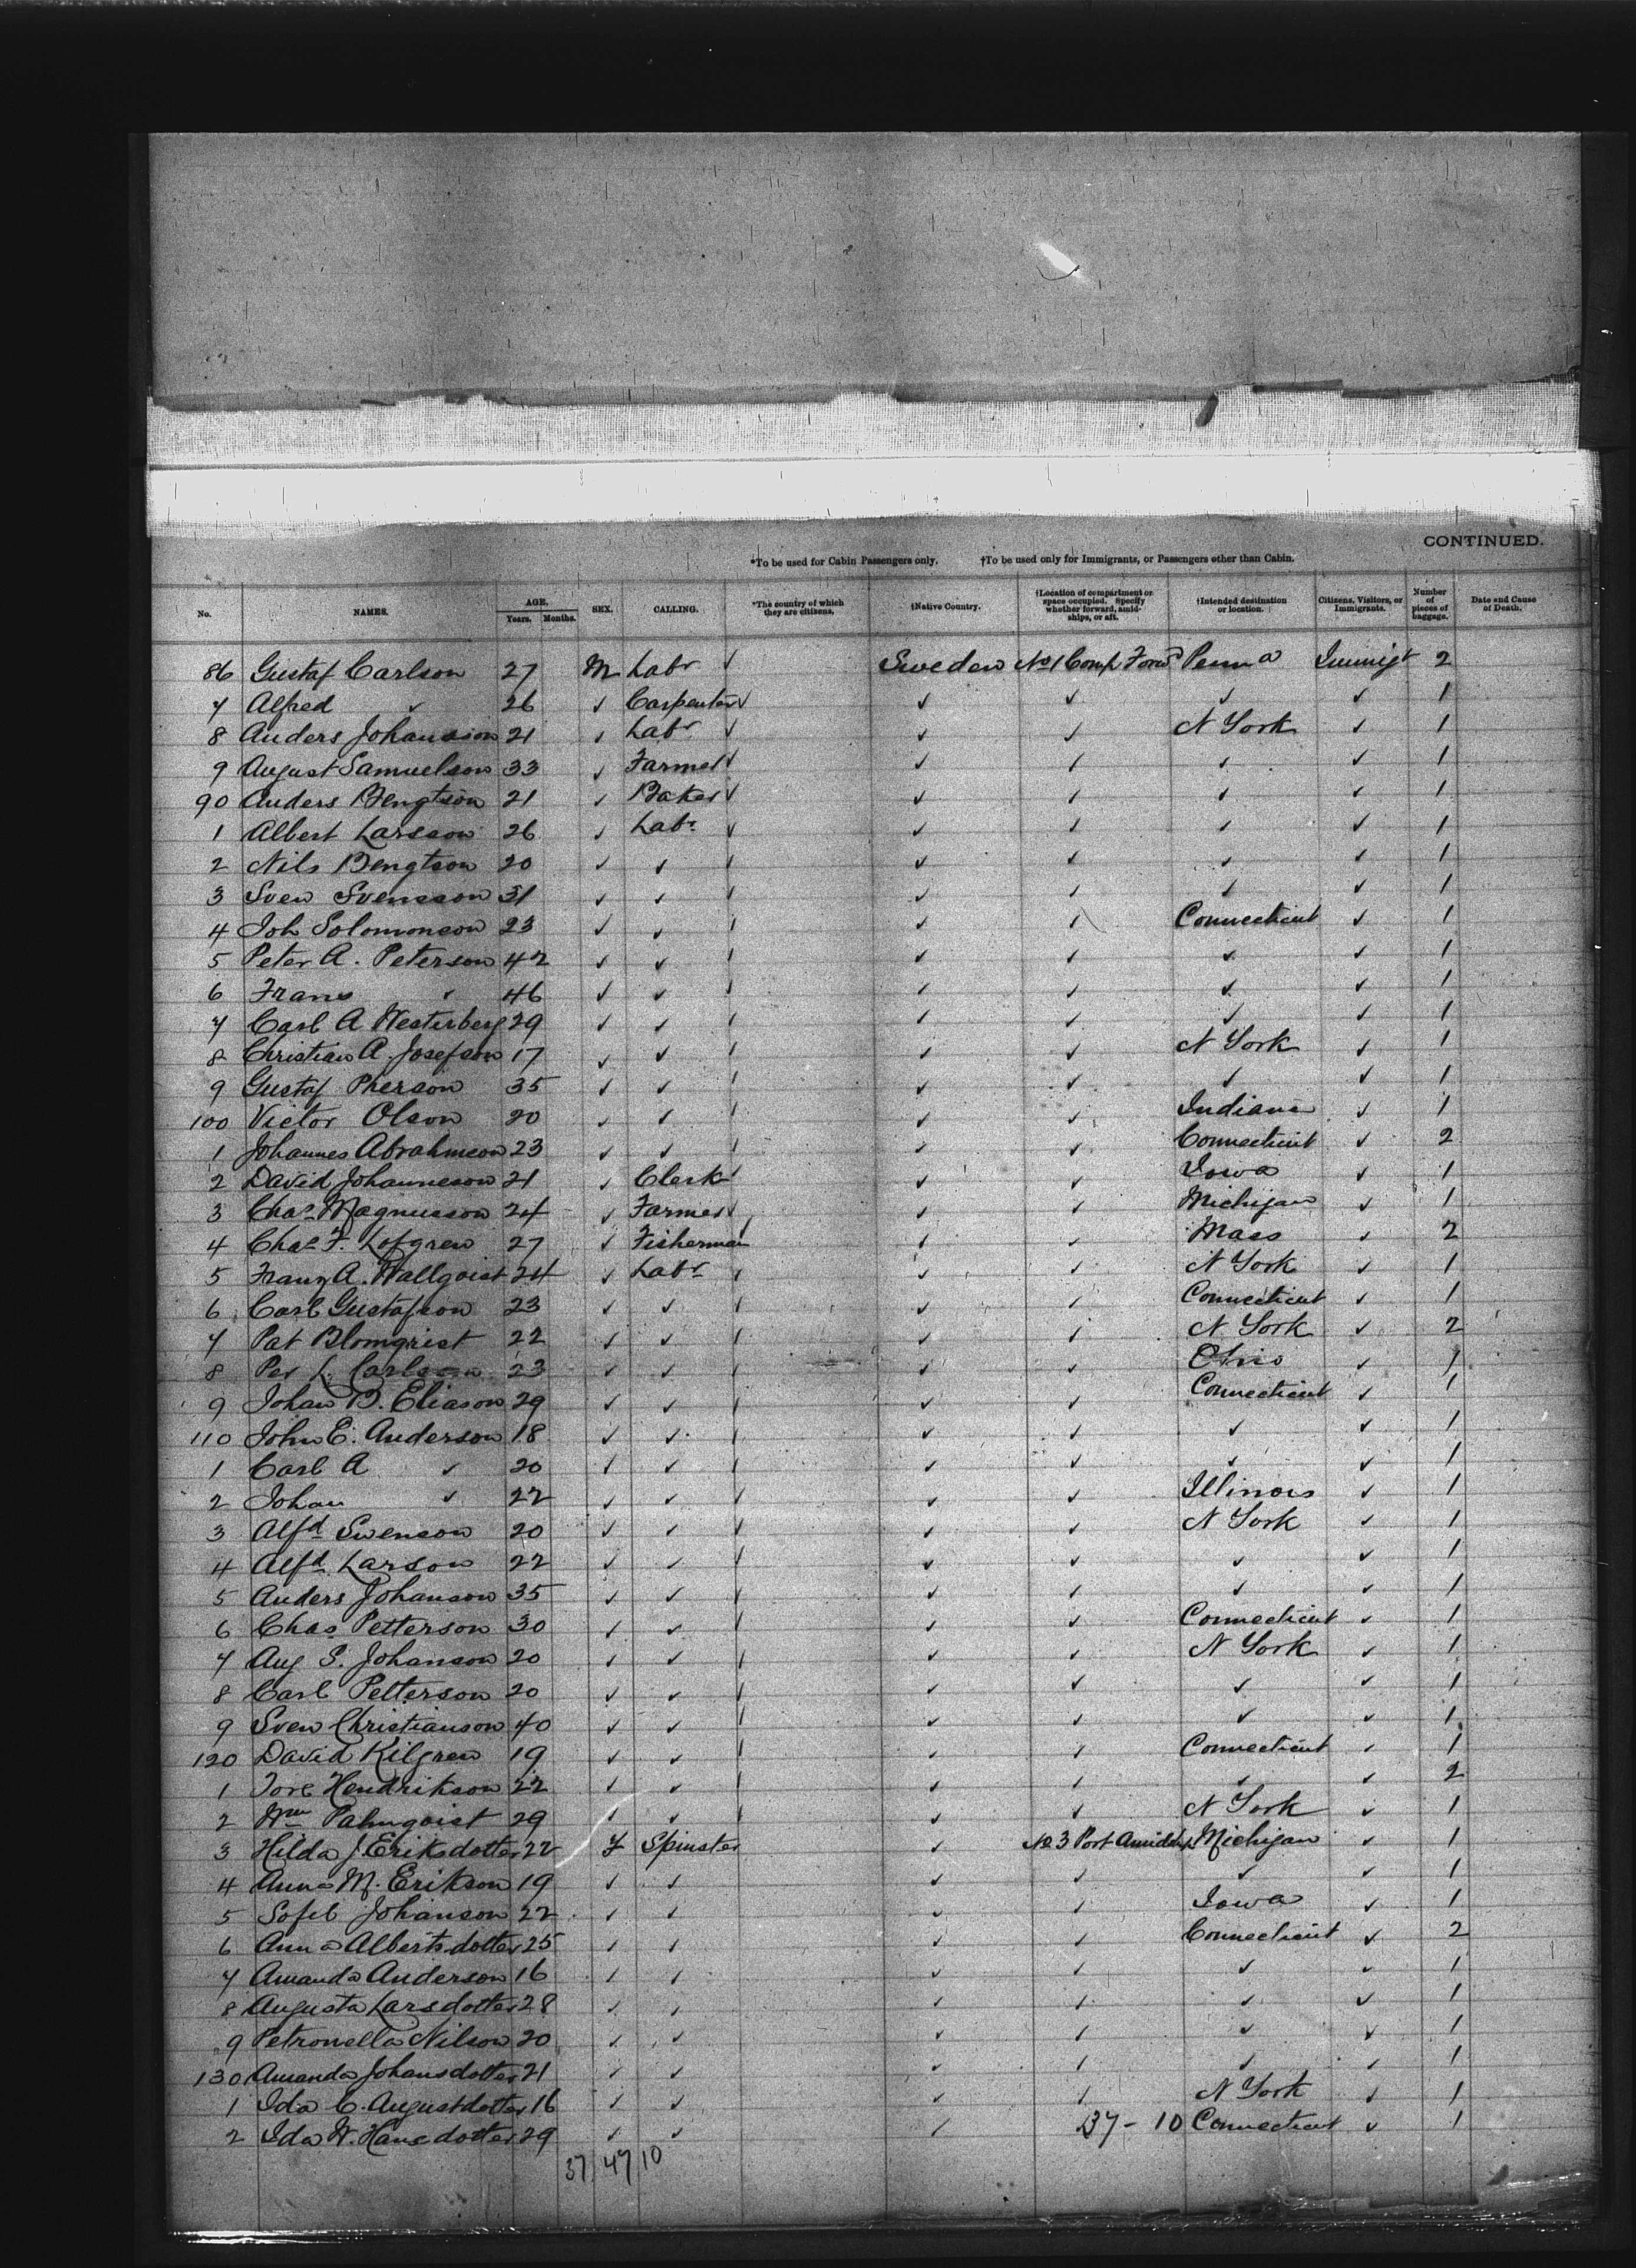 CONTINUED.
*To be used for Cabin Passengers only. †To be used only for Immigrants, or Passengers other than Cabin.
No. NAMES. AGE. Years. Months. SEX. CALLING. *The country of which they are citizens. †Native Country. †Location of compartment or space occupied. Specify whether forward, amidships, or aft. †Intended destination or location. Citizens, Visitors, or Immigrants. Number of pieces of baggage. Date and Cause of Death.
86 Gustaf Carlson 27 M Labr ✓ Sweden No 1 Comp Forwd Penna Immigt 2
7 Alfred ✓ 26 ✓ Carpenter ✓ ✓ ✓ ✓ ✓ 1
8 Anders Johansson 21 ✓ Labr ✓ ✓ ✓ N York ✓ 1
9 August Samuelson 33 ✓ Farmer ✓ ✓ ✓ ✓ ✓ 1
90 Anders Bengtson 21 ✓ Baker ✓ ✓ ✓ ✓ ✓ 1
1 Albert Larsson 26 ✓ Labr ✓ ✓ ✓ ✓ ✓ 1
2 Nils Bengtson 20 ✓ ✓ ✓ ✓ ✓ ✓ ✓ 1
3 Sven Svensson 31 ✓ ✓ ✓ ✓ ✓ ✓ ✓ 1
4 Joh Solomonson 23 ✓ ✓ ✓ ✓ ✓ Connecticut ✓ 1
5 Peter A. Peterson 42 ✓ ✓ ✓ ✓ ✓ ✓ ✓ 1
6 Frans ✓ 46 ✓ ✓ ✓ ✓ ✓ ✓ ✓ 1
7 Carl A Westerberg 29 ✓ ✓ ✓ ✓ ✓ ✓ ✓ 1
8 Christian A. Josefson 17 ✓ ✓ ✓ ✓ ✓ N York ✓ 1
9 Gustaf Pherson 35 ✓ ✓ ✓ ✓ ✓ ✓ ✓ 1
100 Victor Olson 20 ✓ ✓ ✓ ✓ ✓ Indiana ✓ 1
1 Johannes Abrahmson 23 ✓ ✓ ✓ ✓ ✓ Connecticut ✓ 2
2 David Johanneson 21 ✓ Clerk ✓ ✓ ✓ Iowa ✓ 1
3 Chas Magnusson 24 ✓ Farmer ✓ ✓ ✓ Michigan ✓ 1
4 Chas F. Lofgren 27 ✓ Fisherman ✓ ✓ ✓ Mass ✓ 2
5 Franz A. Wallqvist 24 ✓ Labr ✓ ✓ ✓ N York ✓ 1
6 Carl Gustafson 23 ✓ ✓ ✓ ✓ ✓ Connecticut ✓ 1
7 Pat Blomqvist 22 ✓ ✓ ✓ ✓ ✓ N York ✓ 2
8 Per L. Carlson 23 ✓ ✓ ✓ ✓ ✓ Ohio ✓ 1
9 Johan B. Eliason 29 ✓ ✓ ✓ ✓ ✓ Connecticut ✓ 1
110 John E. Anderson 18 ✓ ✓ ✓ ✓ ✓ ✓ ✓ 1
1 Carl A ✓ 20 ✓ ✓ ✓ ✓ ✓ ✓ ✓ 1
2 Johan ✓ 22 ✓ ✓ ✓ ✓ ✓ Illinois ✓ 1
3 Alfd Swenson 20 ✓ ✓ ✓ ✓ ✓ N York ✓ 1
4 Alfd Larson 22 ✓ ✓ ✓ ✓ ✓ ✓ ✓ 1
5 Anders Johanson 35 ✓ ✓ ✓ ✓ ✓ ✓ ✓ 1
6 Chas Petterson 30 ✓ ✓ ✓ ✓ ✓ Connecticut ✓ 1
7 Aug S. Johanson 20 ✓ ✓ ✓ ✓ ✓ N York ✓ 1
8 Carl Petterson 20 ✓ ✓ ✓ ✓ ✓ ✓ ✓ 1
9 Sven Christianson 40 ✓ ✓ ✓ ✓ ✓ ✓ ✓ 1
120 David Kilgren 19 ✓ ✓ ✓ ✓ ✓ Connecticut ✓ 1
1 Tore Hendrikson 22 ✓ ✓ ✓ ✓ ✓ ✓ ✓ 2
2 Wm Palmqvist 29 ✓ ✓ ✓ ✓ ✓ N York ✓ 1
3 Hilda J. Eriksdotter 22 F Spinster ✓ No 3 Port Amidsh Michigan ✓ 1
4 Anna M. Erikson 19 ✓ ✓ ✓ ✓ ✓ ✓ 1
5 Sofie Johanson 22 ✓ ✓ ✓ ✓ Iowa ✓ 1
6 Anna Albertsdotter 25 ✓ ✓ ✓ ✓ Connecticut ✓ 2
7 Amanda Anderson 16 ✓ ✓ ✓ ✓ ✓ ✓ 1
8 Augusta Larsdotter 28 ✓ ✓ ✓ ✓ ✓ ✓ 1
9 Petronella Nilson 20 ✓ ✓ ✓ ✓ ✓ ✓ 1
130 Amanda Johansdotter 21 ✓ ✓ ✓ ✓ ✓ ✓ 1
1 Ida C. Augustdotter 16 ✓ ✓ ✓ ✓ N York ✓ 1
2 Ida W. Hansdotter 29 ✓ ✓ ✓ 37 - 10 Connecticut ✓ 1
37 / 47 / 10